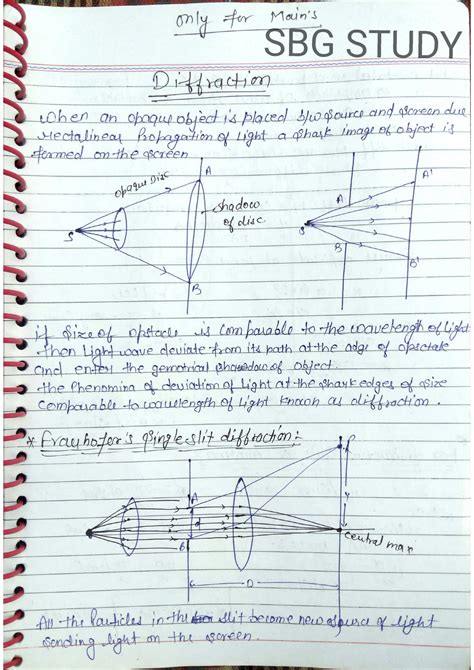 only for Main's
SBG STUDY
Diffraction
When an opaque object is placed b/w source and screen due
rectalinear Propagation of light a shark image of object is
formed on the screen
opaque Disc
A
shadow
of disc.
S
B
A
A'
S
B
B'
if size of opstacle is comparable to the wavelength of light
then light wave deviate from its path at the adge of opsctale
and enter the gemotrical shawdow of object.
the Phenomina of deviation of light at the shark edges of size
comparable to wavelength of light known as diffraction.
* Frauhofor's single slit diffraction:-
P
A
d
B
y
central max
D
All the Particles in the slit become new source of light
sending light on the screen.